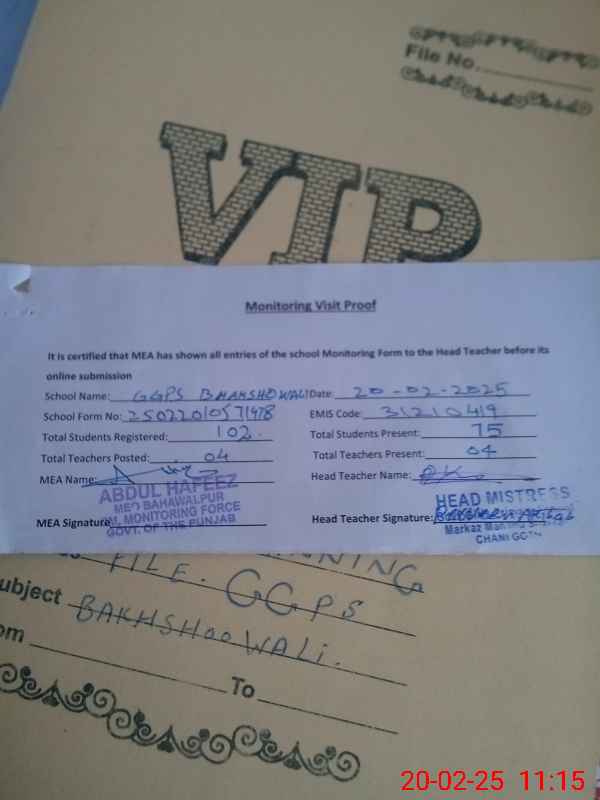 File No.
VIP
Monitoring Visit Proof
It is certified that MEA has shown all entries of the school Monitoring Form to the Head Teacher before its
online submission
School Name: GGPS BHAKSHOWALI Date: 20-02-2025
School Form No: 25022010571478 EMIS Code: 31210419
Total Students Registered: 102. Total Students Present: 75
Total Teachers Posted: 04 Total Teachers Present: 04
MEA Name: Head Teacher Name:
ABDUL HAFEEZ
MEO BAHAWALPUR
MONITORING FORCE
GOVT. OF THE PUNJAB
MEA Signature
HEAD MISTRESS
Head Teacher Signature:
Markaz
CHANI GOTH
FILE. GGPS
ubject BAKHSHOOWALI.
om To
20-02-25 11:15